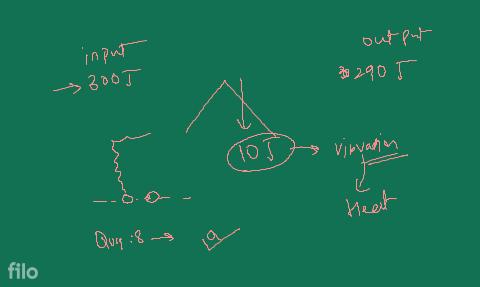 input
→ 300 J
output
290 J
10 J → vibration
Heat
Que : 8 → a
filo